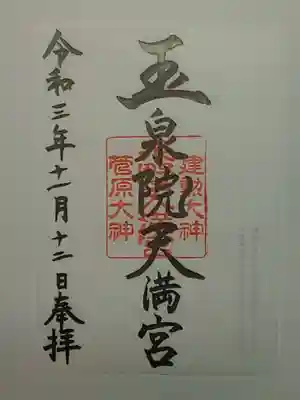 玉泉院天満宮
建勲大神
菅原大神
令和三年十一月十二日奉拝